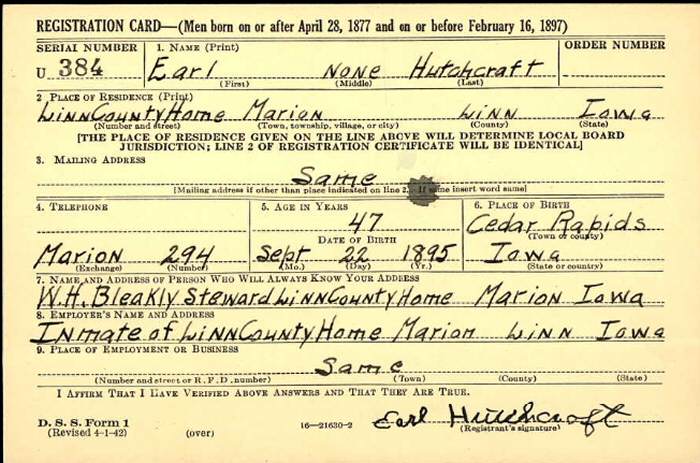 REGISTRATION CARD—(Men born on or after April 28, 1877 and on or before February 16, 1897)
SERIAL NUMBER 1. NAME (Print) ORDER NUMBER
U 384 Earl None Hutchcraft
(First) (Middle) (Last)
2. PLACE OF RESIDENCE (Print)
Linn County Home Marion Linn Iowa
(Number and street) (Town, township, village, or city) (County) (State)
[THE PLACE OF RESIDENCE GIVEN ON THE LINE ABOVE WILL DETERMINE LOCAL BOARD
JURISDICTION; LINE 2 OF REGISTRATION CERTIFICATE WILL BE IDENTICAL]
3. MAILING ADDRESS
Same
[Mailing address if other than place indicated on line 2. If same insert word same]
4. TELEPHONE 5. AGE IN YEARS 6. PLACE OF BIRTH
47 Cedar Rapids
DATE OF BIRTH (Town or county)
Marion 294 Sept 22 1895 Iowa
(Exchange) (Number) (Mo.) (Day) (Yr.) (State or country)
7. NAME AND ADDRESS OF PERSON WHO WILL ALWAYS KNOW YOUR ADDRESS
W.H. Bleakly Steward Linn County Home Marion Iowa
8. EMPLOYER'S NAME AND ADDRESS
Inmate of Linn County Home Marion Linn Iowa
9. PLACE OF EMPLOYMENT OR BUSINESS
Same
(Number and street or R. F. D. number) (Town) (County) (State)
I AFFIRM THAT I HAVE VERIFIED ABOVE ANSWERS AND THAT THEY ARE TRUE.
D. S. S. Form 1 Earl Hutchcraft
(Revised 4-1-42) (over) 16—21630-2 (Registrant's signature)